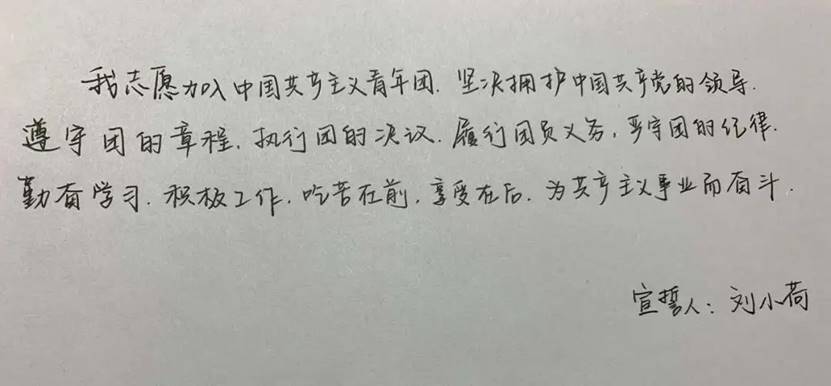 我志愿加入中国共产主义青年团.坚决拥护中国共产党的领导.
遵守团的章程.执行团的决议.履行团员义务,严守团的纪律.
勤奋学习.积极工作.吃苦在前,享受在后.为共产主义事业而奋斗.
宣誓人:刘小荷